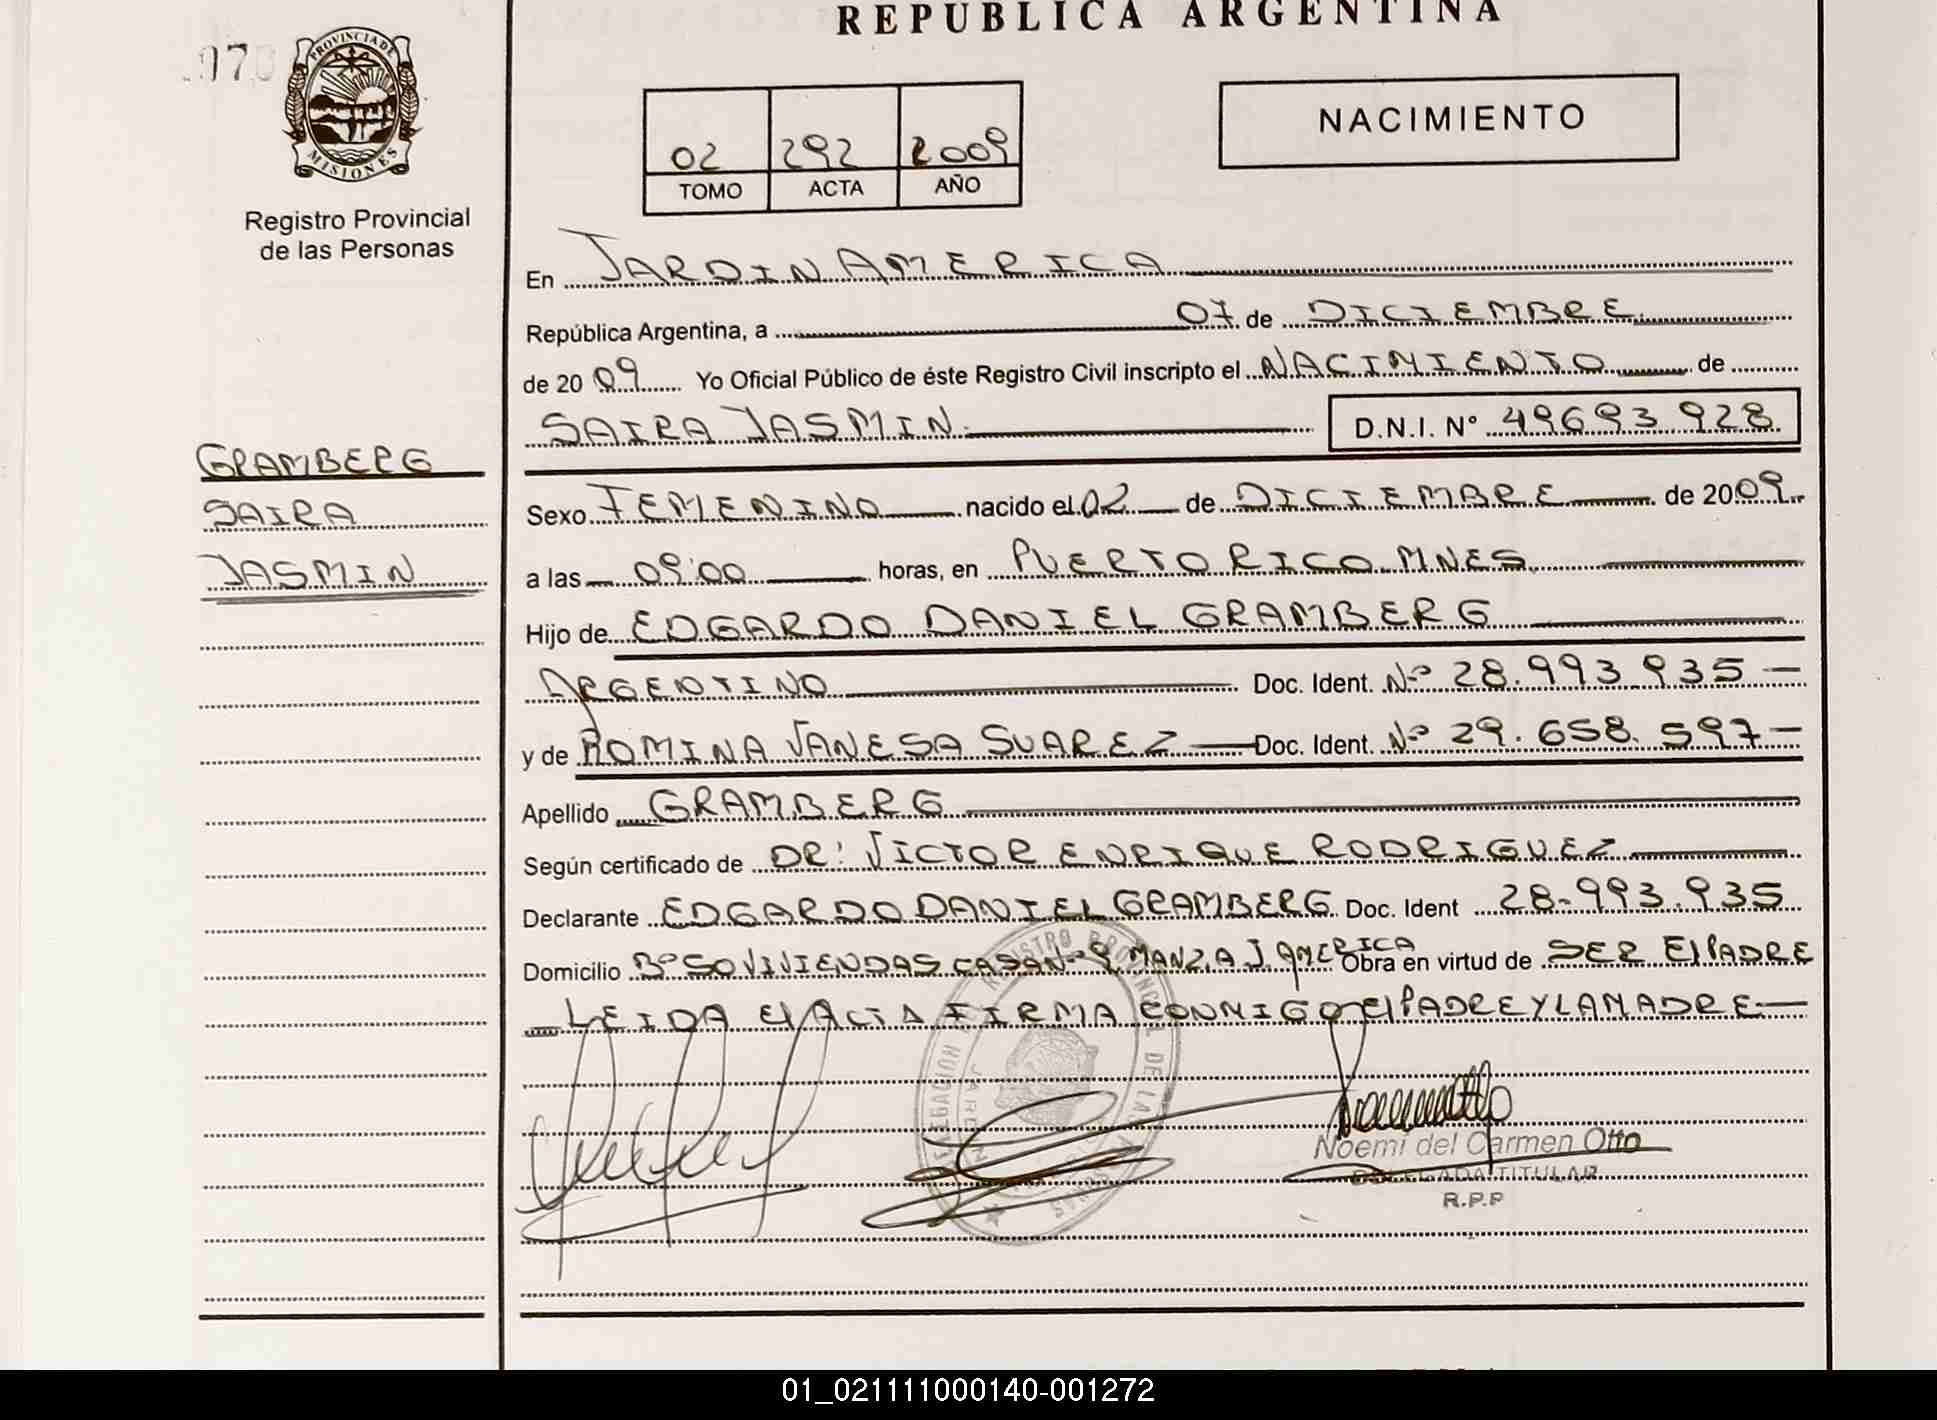 REPUBLICA ARGENTINA
PROVINCIA DE
MISIONES
Registro Provincial
de las Personas
02 292 2009
TOMO ACTA AÑO
NACIMIENTO
En JARDIN AMERICA
República Argentina, a 07 de DICIEMBRE
de 2009 Yo Oficial Público de éste Registro Civil inscripto el NACIMIENTO de
SAIRA JASMIN D.N.I. N° 49693928
GRAMBERG
SAIRA
JASMIN
Sexo FEMENINO nacido el 02 de DICIEMBRE de 2009
a las 09:00 horas, en PUERTO RICO MNES
Hijo de EDGARDO DANIEL GRAMBERG
ARGENTINO Doc. Ident. Nº 28.993.935
y de ROMINA VANESA SUAREZ Doc. Ident. Nº 29.658.597
Apellido GRAMBERG
Según certificado de DR: VICTOR ENRIQUE RODRIGUEZ
Declarante EDGARDO DANIEL GRAMBERG Doc. Ident 28.993.935
Domicilio Bº 50 VIVIENDAS CASA Nº 9 MANZ. A J. AMERICA Obra en virtud de SER El PADRE
LEIDA El ACTA FIRMA CONMIGO El PADRE Y LA MADRE
Noemí del Carmen Otto
DELEGADA TITULAR
R.P.P
01_021111000140-001272